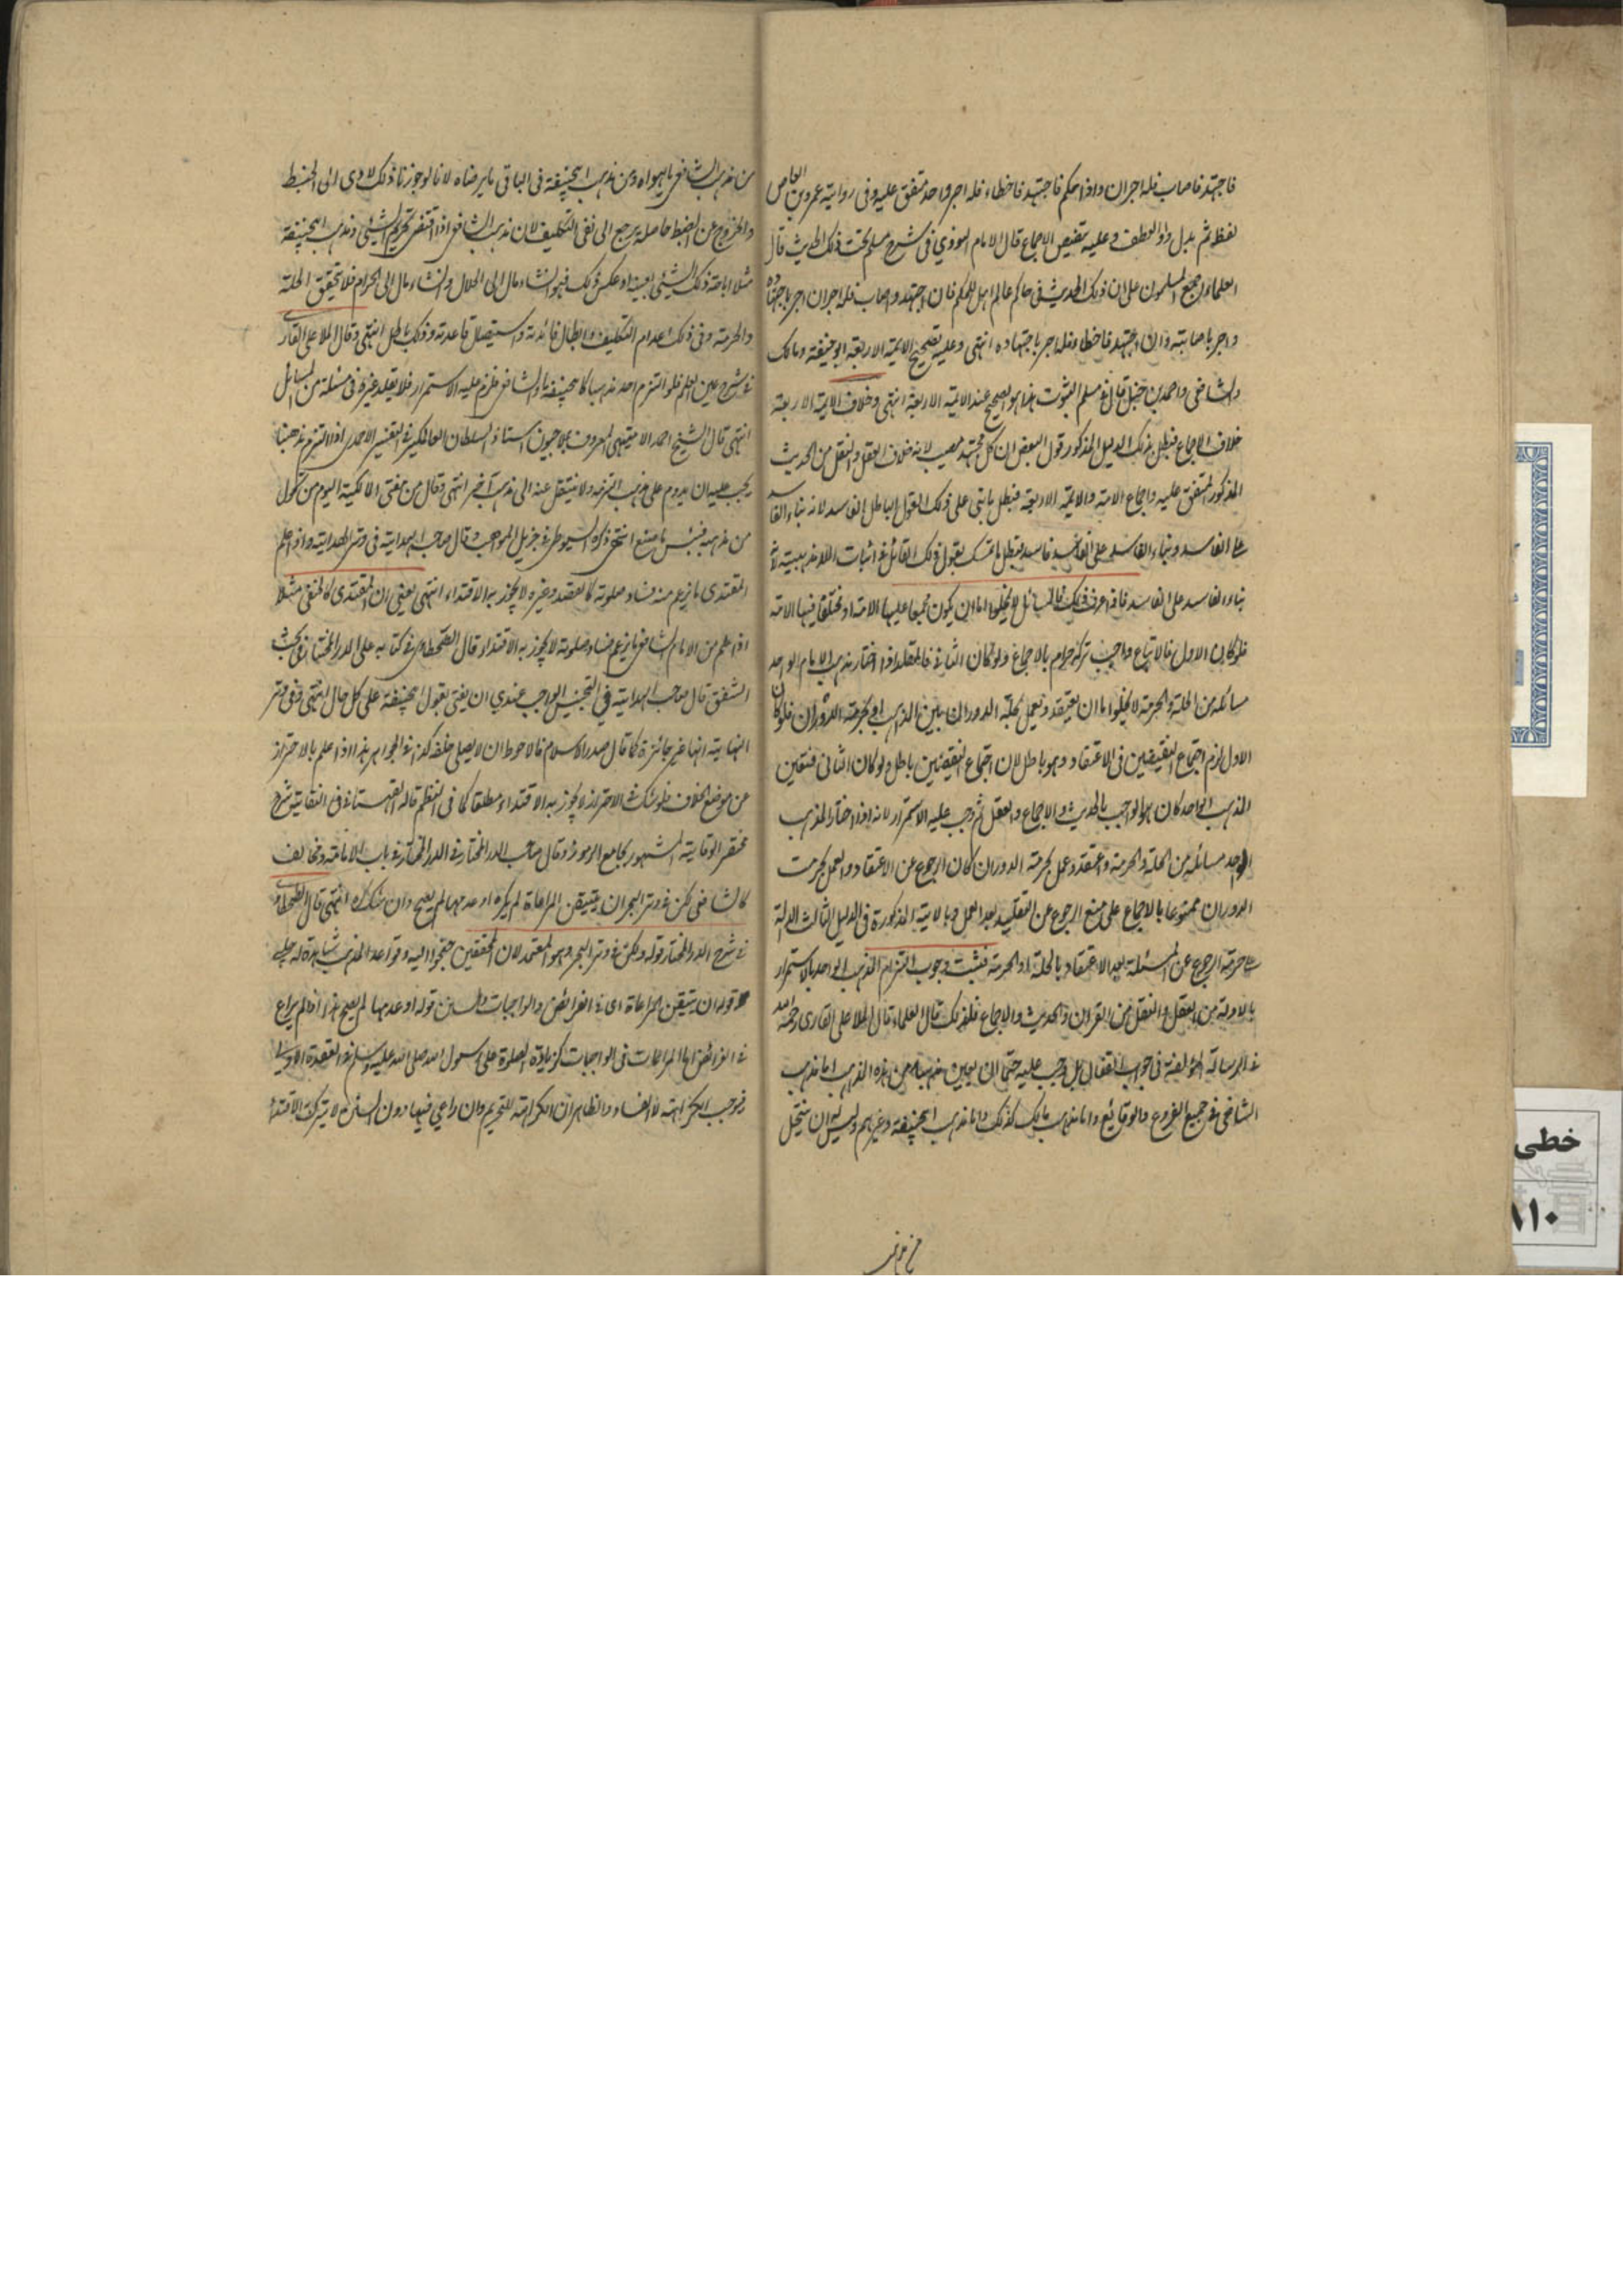 فاجتهد فاصاب فله اجران واذا حكم فاجتهد فاخطاء فله اجر واحد متفق عليه وفى رواية عمرو بن العاص
لفظ ثم بدل واو العطف وعليه تنصيص الاجماع قال الامام النووي فى شرح مسلم تحت ذلك الحديث قال
العلماء اجمع المسلمون على ان ذلك الحديث فى حاكم عالم اهل للحكم فان اجتهد واصاب فله اجران اجر باجتهاده
واجر باصابته وان اجتهد فاخطاء فله اجر باجتهاده انتهى وعليه تصحيح الايمة الاربعة ابو حنيفة ومالك
والشافعى واحمد بن حنبل قال فى مسلم الثبوت هذا هو الصحيح عند الايمة الاربعة انتهى وخلاف الايمة الاربعة
خلاف الاجماع فبطل بذلك الدليل المذكور قول البعض ان كل مجتهد مصيب لانه خلاف العقل والنقل من الحديث
المذكور المتفق عليه واجماع الامة والايمة الاربعة فبطل ما بنى على ذلك القول الباطل الفاسد لانه بناء الفاسد
على الفاسد وبناء الفاسد على الفاسد فاسد فبطل ما تمسك بقول ذلك القائل فى اثبات اللامذهبية
بناء الفاسد على الفاسد فاذا عرفت ذلك فالمسائل لا يخلوا اما ان يكون مجمعا عليها الامة او مختلفا فيها الامة
فلو كان الاول فالاتباع واجب تركه حرام بالاجماع ولو كان الثانى فالمقلد اذا اختار مذهب الامام الواحد
مسائله من الحلة والحرمة لا يخلوا اما ان يعتقد ويعمل بحلة الدوران ما بين المذهب او بحرمة الدوران فلو كان
الاول لزم اجتماع النقيضين فى الاعتقاد وهو باطل لان اجتماع النقيضين باطل ولو كان الثانى فتعين
المذهب الواحد كان هو الواجب بالحديث والاجماع والعقل ثم وجب عليه الاستمرار لانه اذا اختار المذهب
الواحد مسائله من الحلة والحرمة واعتقد وعمل بحرمة الدوران كان الرجوع عن الاعتقاد والعمل بحرمت
الدوران ممنوعا بالاجماع على منع الرجوع عن التقليد بعد العمل وبالاية المذكورة فى الدليل الثالث الدالة
على حرمة الرجوع عن المسئلة بعد الاعتقاد بالحلة او الحرمة فثبت وجوب التزام المذهب الواحد بالاستمرار
بالادلة من العقل والنقل من القران والحديث والاجماع فلذلك قال العلماء قال الملا على القارى رحمه الله
فى الرسالة المؤلفة فى جواب القفال بل وجب عليه حتما ان يعين مذهبا من هذه المذاهب اما مذهب
الشافعى فى جميع الفروع والوقائع واما مذهب مالك كذلك واما مذهب ابيحنيفة وغيرهم وليس له ان ينتحل
من مذهب الشافعى ما يهواه ومن مذهب ابيحنيفة فى الباقى ما يرضاه لانا لو جوزنا ذلك لادى الى الخبط
والخروج عن الضبط حاصله يرجع الى نفى التكليف لان مذهب الشافعى اذا اقتضى تحريم الشيئى ومذهب ابيحنيفة
مثلا اباحة ذلك الشيئى بعينه او عكس ذلك فهو ان شاء مال الى الحلال وان شاء مال الى الحرام فلا تحقيق الحلة
والحرمة وفى ذلك اعدام التكليف وابطال فائدته واستيصال قاعدته وذلك باطل انتهى وقال الملا على القارى
فى شرح عين العلم فلو التزم احد مذهبا كابيحنيفة والشافعى فلزم عليه الاستمرار فلا يقلد غيره فى مسئلة من المسائل
انتهى قال الشيخ احمد الاميتهى المعروف بملاجيون استاذ السلطان العالمكير فى التفسير الاحمدى اذا التزم مذهبا
يجب عليه ان يدوم على مذهب التزمه ولا ينتقل عنه الى مذهب آخر انتهى وقال من مفتى المالكية اليوم من تحول
من مذهبه فبئس ما صنع انتهى ذكره السيوطى فى جزيل المواهب وقال صاحب الهداية فى وتر الهداية واذا علم
المقتدى ما يزعم منه فساد صلوته كالفصد وغيره لا يجوز به الاقتداء انتهى يعنى ان المقتدى كالحنفى مثلا
اذا علم من الامام الشافعى ما يزعم فساد صلوته لا يجوز به الاقتداء وقال الطحطاوى فى كتابه على الدر المختار فى بحث
الشفق قال صاحب الهداية فى التجنيس الواجب عندي ان يفتى بقول ابيحنيفة على كل حال انتهى وفى وتر
النهاية انها غير جائزة كما قال صدر الاسلام فالاحوط ان لا يصلى خلفه كذا فى الجواهر هذا اذا علم بالاحتراز
عن موضع الخلاف فلو شك فى الاحتراز لا يجوز به الاقتداء مطلقا كما فى النظم قاله القهستانى فى النقاية شرح
مختصر الوقاية المشهور بجامع الرموز وقال صاحب الدر المختار فى الدر المختار فى باب الامامة ومخالف
كالشافعى لكن فى وتر البحر ان يتيقن المراعاة لم يكره او عدمها لم يصح وان شك كره انتهى قال الطحطاوى
فى شرح الدر المختار قوله ولكن فى وتر البحر وهو المعتمد لان المحققين جنحوا اليه وقواعد المذهب شاهدة له حلبى
قوله ان يتيقن المراعاة اى فى الفرائض والواجبات والسنن قوله او عدمها لم يصح هذا اذا لم يراع
فى الفرائض اما المراعات فى الواجبات كزيادة الصلوة على رسول الله صلى الله عليه وسلم فى القعدة الاولى
فيوجب الكراهة لا الفساد والظاهر ان الكراهة للتحريم وان راعي فيها دون السنن لا يترك الاقتداء
خطى